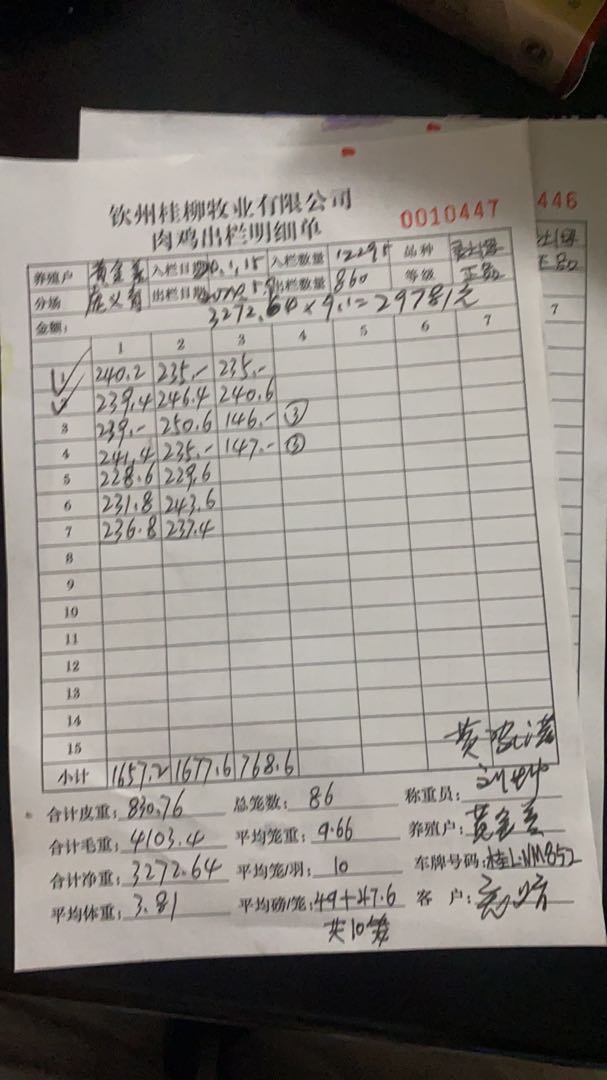 钦州桂柳牧业有限公司
肉鸡出栏明细单
0010447
446
养殖户 黄金 入栏日期 入栏数量 品种
分场 出栏日期 出栏数量 860 等级 正品
金额： 3272.64×9.1=29781元
1 2 3 4 5 6 7
1 240.2 235.- 235.-
2 239.4 246.4 240.6
3 239.- 250.6 146.- ③
4 241.4 235.- 147.- ③
5 228.6 229.6
6 231.8 243.6
7 236.8 237.4
8
9
10
11
12
13
14
15
小计 1657.2 1677.6 768.6
合计皮重：830.76 总笼数：86 称重员：
合计毛重：4103.4 平均笼重：9.66 养殖户：黄金
合计净重：3272.64 平均笼/羽：10 车牌号码：桂L.VM852
平均体重：3.81 平均磅/笼：49+47.6 客户：
共10笼
7